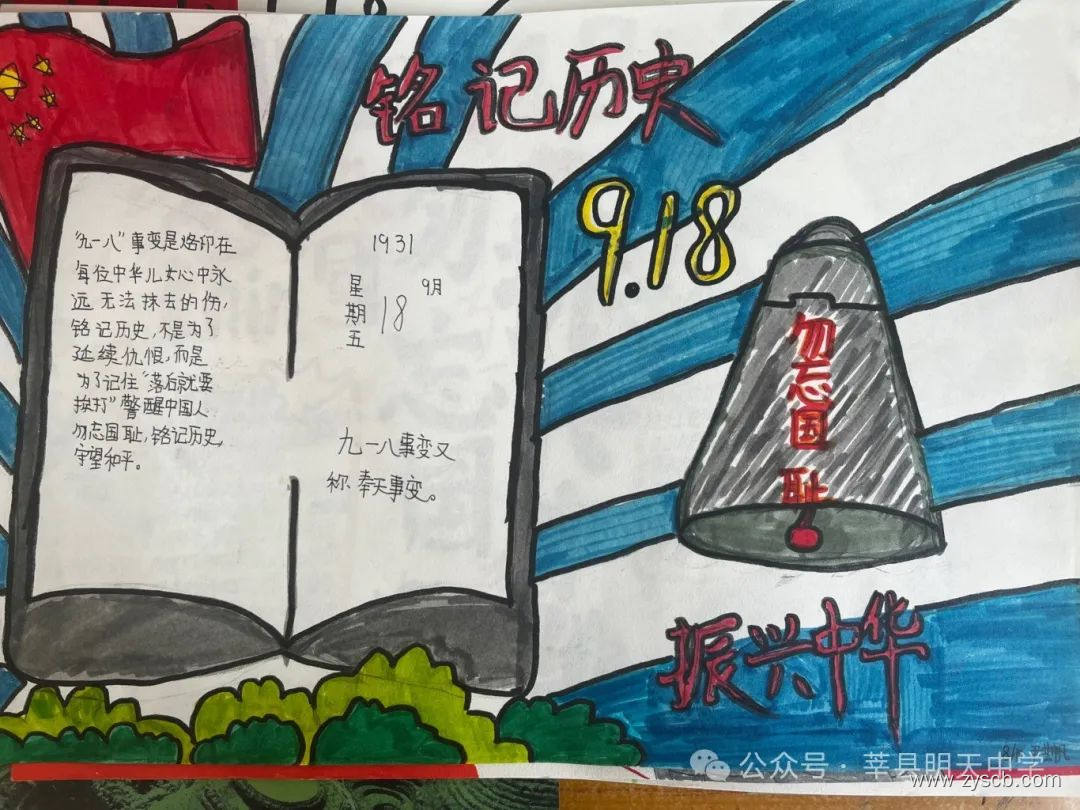 铭记历史
9.18
"九一八"事变是烙印在
每位中华儿女心中永
远无法抹去的伤,
铭记历史,不是为了
延续仇恨,而是
为了记住"落后就要
挨打"警醒中国人
勿忘国耻,铭记历史,
守望和平。
1931
9月
星期五
18
九一八事变又
称奉天事变。
勿忘国耻
振兴中华
公众号·莘县明天中学
www.zyscb.com